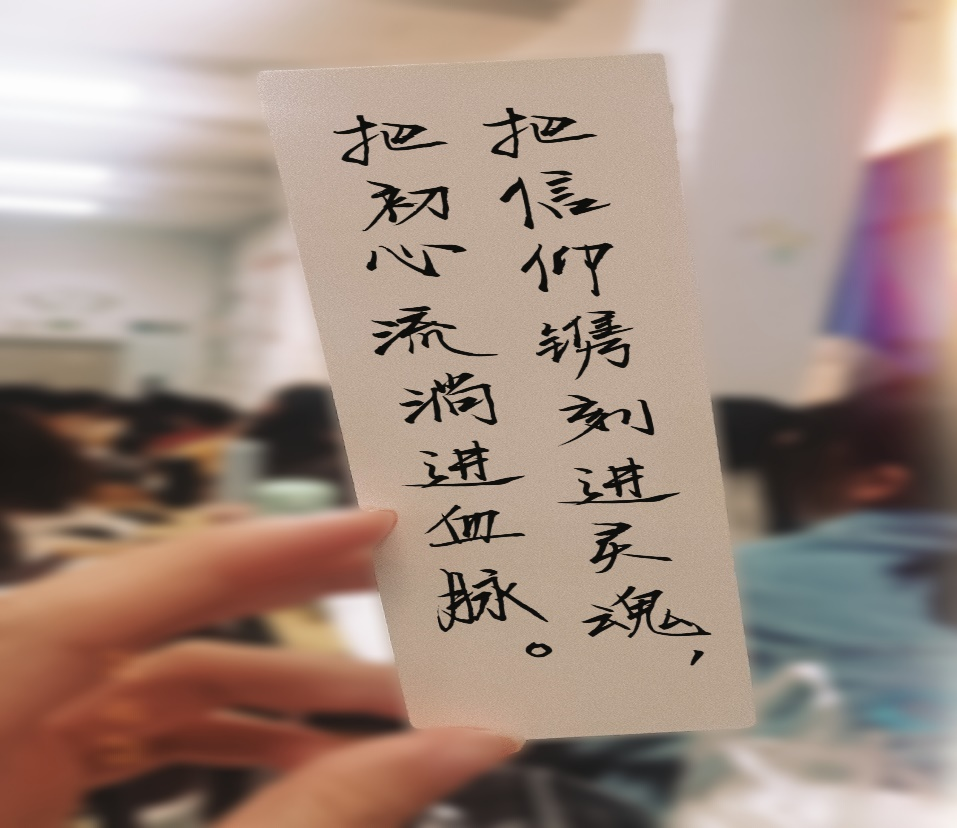 把信仰镌刻进灵魂，
把初心流淌进血脉。